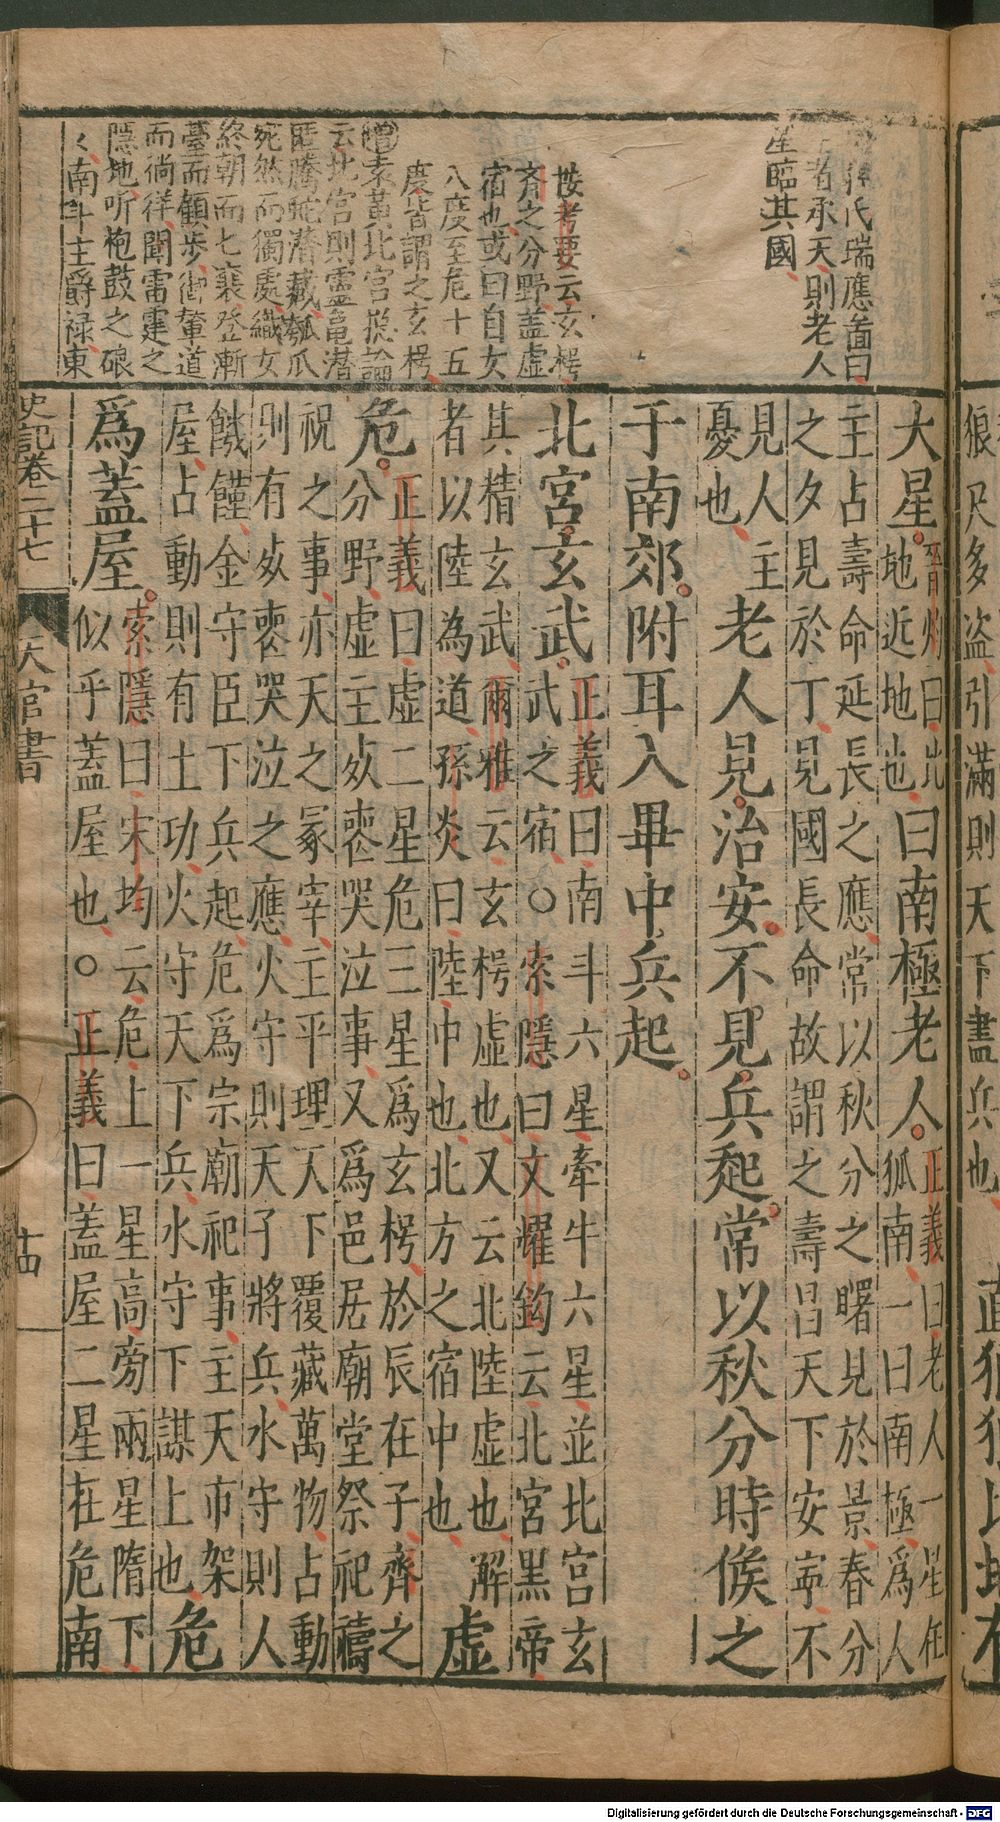 孫氏瑞應啚曰
王者承天則老人
星臨其國
按考要云玄枵
齊之分野蓋虛
宿也或曰自女
八度至危十五
度皆謂之玄枵
增袁黃北宮擬論
云北宮則靈龜潜
匿騰蛇潜藏瓠瓜
宛然而獨處織女
終朝而七襄登漸
臺而顧步御輦道
而徜徉聞雷霆之
隱地听枹鼓之硠
く南斗主爵禄東
狼尺多盜引滿則天下盡兵也
大星晉灼曰此
地近地也曰南極老人正義曰老人一星在
狐南一曰南極爲人
主占壽命延長之應常以秋分之曙見於景春分
之夕見於丁見國長命故謂之壽昌天下安寕不
見人主
憂也老人見治安不見兵起常以秋分時候之
于南郊附耳入畢中兵起
北宮玄武正義曰南斗六星牽牛六星並北宮玄
武之宿○索隱曰文耀鈎云北宮黑帝
其精玄武爾雅云玄枵虛也又云北陸虛也解
者以陸為道孫炎曰陸中也北方之宿中也虛
危正義曰虛二星危三星爲玄枵於辰在子齊之
分野虛主死喪哭泣事又爲邑居廟堂祭祀禱
祝之事亦天之冢宰主平理天下覆藏萬物占動
則有死喪哭泣之應火守則天子將兵水守則人
饑饉金守臣下兵起危爲宗廟祀事主天市架
屋占動則有土功火守天下兵水守下謀上也危
爲蓋屋索隱曰宋均云危上一星高旁兩星隋下
似乎蓋屋也○正義曰蓋屋二星在危南
史記卷二十七
天官書
十四
Digitalisierung gefördert durch die Deutsche Forschungsgemeinschaft - DFG